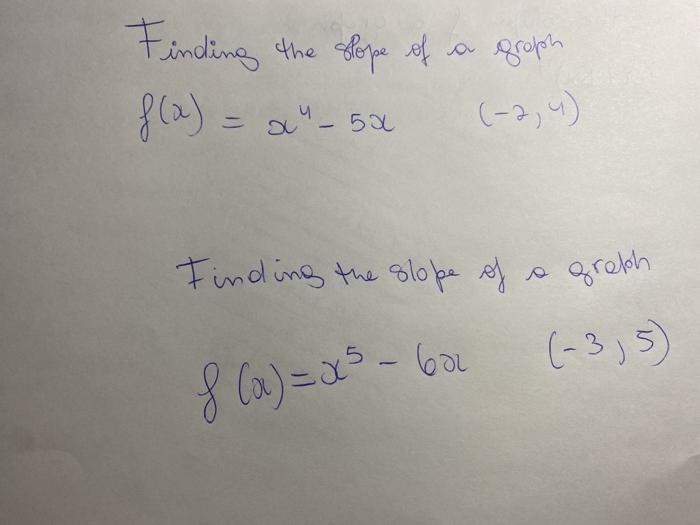 Finding the slope of a graph
f(x) = x⁴ - 5x (-2, 4)
Finding the slope of a graph
f(x) = x⁵ - 6x (-3, 5)